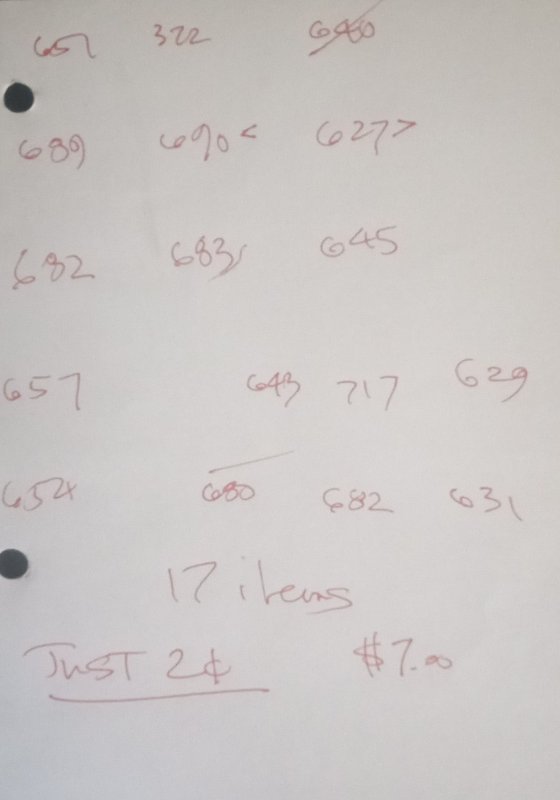 657 322 640
689 690< 627>
682 683 645
657 643 717 629
654 680 682 631
17 items
JUST 2¢ $7.00